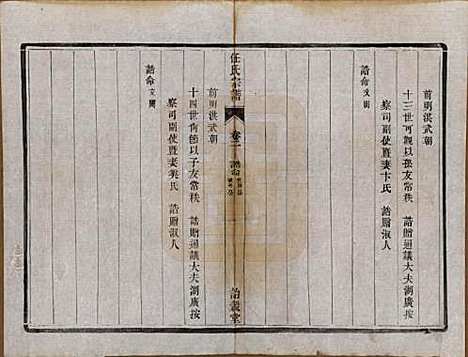 前明洪武朝
十三世可觀以孫友常秩　誥贈通議大夫湖廣按
察司副使暨妻卞氏　誥贈淑人
誥命文闕
任氏宗譜
卷二　誥命
詒穀堂
前明洪武朝
十四世可德以子友常秩　誥贈通議大夫湖廣按
察司副使暨妻龔氏　誥贈淑人
誥命文闕